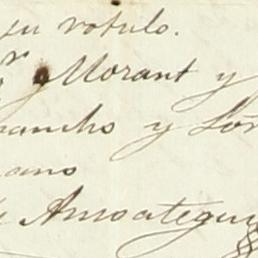 su rotulo.
r y Morant y
rancho y Lor
ano
Amoategui